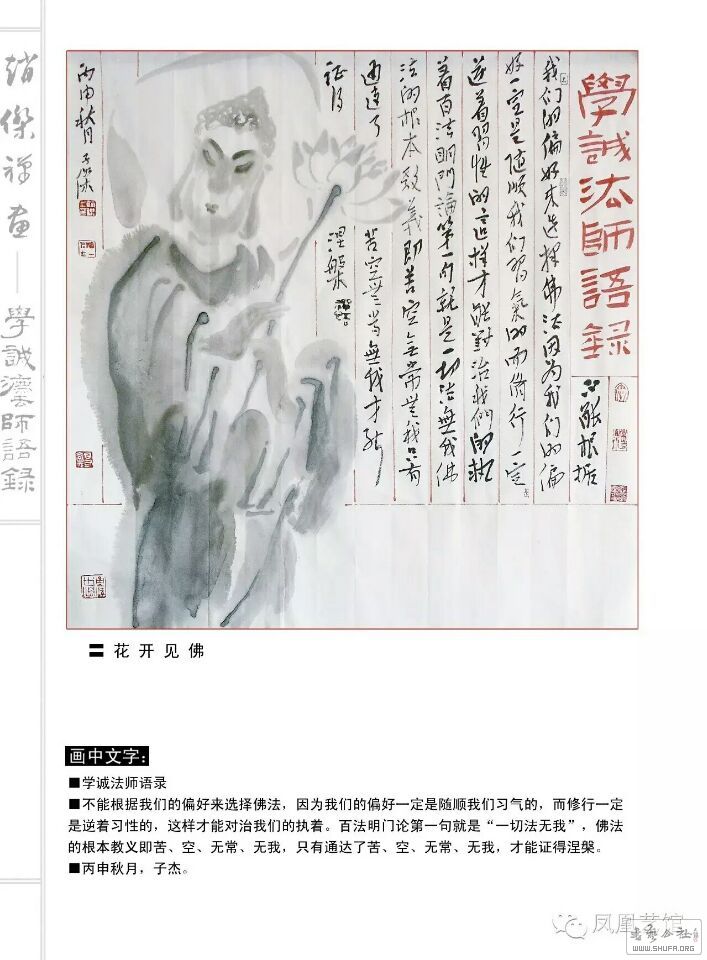 趙傑禪畫——學誠灋師語錄
學誠法師語録
不能根据
我们的偏好来选择佛法因为我们的偏
好一定是随顺我们習氣的而修行一定
逆着習性的这样才能對治我们的執
着百法明门論第一句就是一切法無我佛
法的根本教義即苦空無常無我只有
通達了 苦空無常無我才能
证得 涅槃
丙申秋月子杰
〓 花开见佛
画中文字：
■学诚法师语录
■不能根据我们的偏好来选择佛法，因为我们的偏好一定是随顺我们习气的，而修行一定
是逆着习性的，这样才能对治我们的执着。百法明门论第一句就是“一切法无我”，佛法
的根本教义即苦、空、无常、无我，只有通达了苦、空、无常、无我，才能证得涅槃。
■丙申秋月，子杰。
凤凰艺馆
WWW.SHUFA.ORG